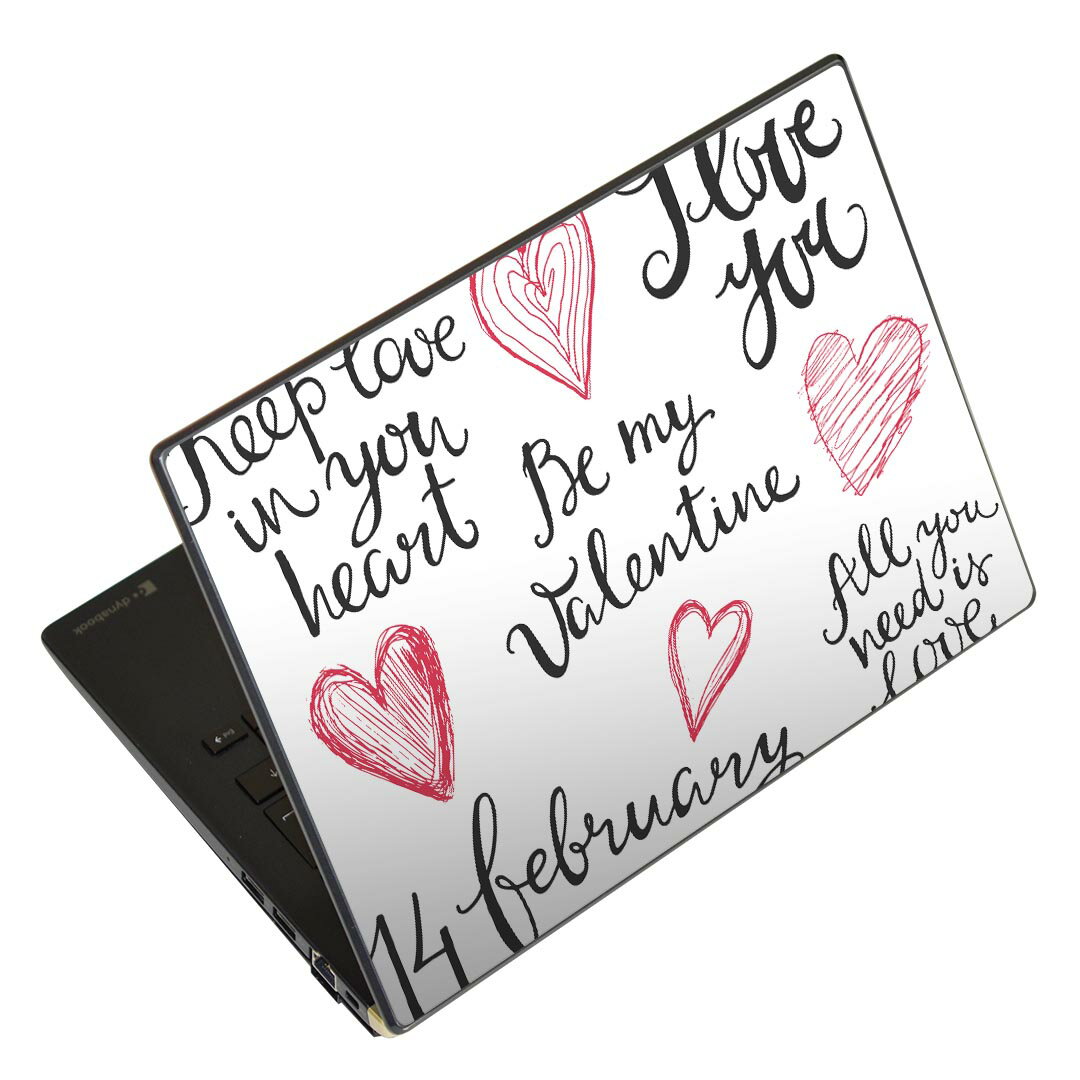 I love
you
keep love
in your
heart
Be my
Valentine
All you
need is
love
14 february
dynabook
End